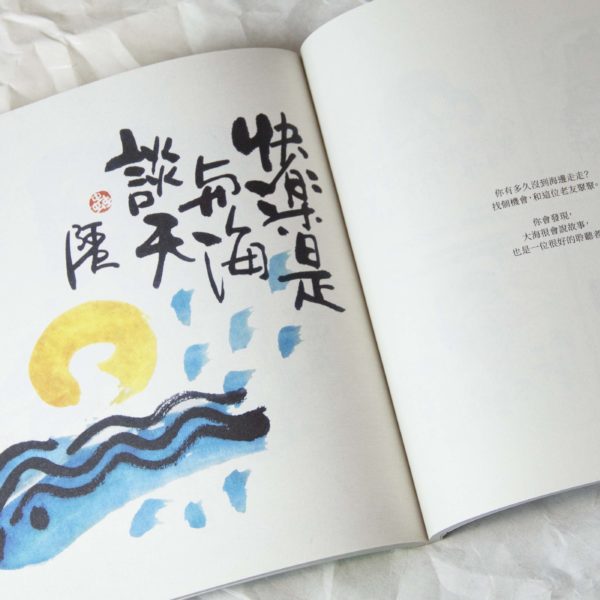 快樂是
与海
談天
你有多久沒到海邊走走？
找個機會，和這位老友聚聚。
你會發現，
大海很會說故事，
也是一位很好的聆聽者